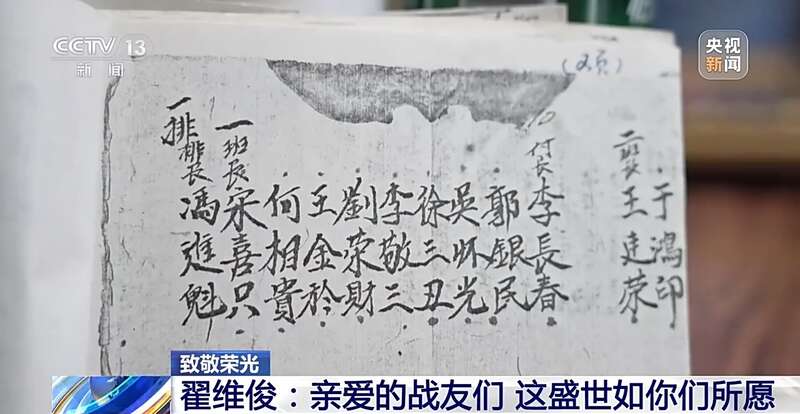 CCTV 13
新闻
央视
新闻
(2页)
一排
排长
馮進魁
一班长
宋喜只
何相貴
王金於
劉荣財
李敬三
徐三丑
吳怀光
郭銀民
付长
李長春
二班长
王廷荣
于鴻印
致敬荣光
翟维俊：亲爱的战友们 这盛世如你们所愿